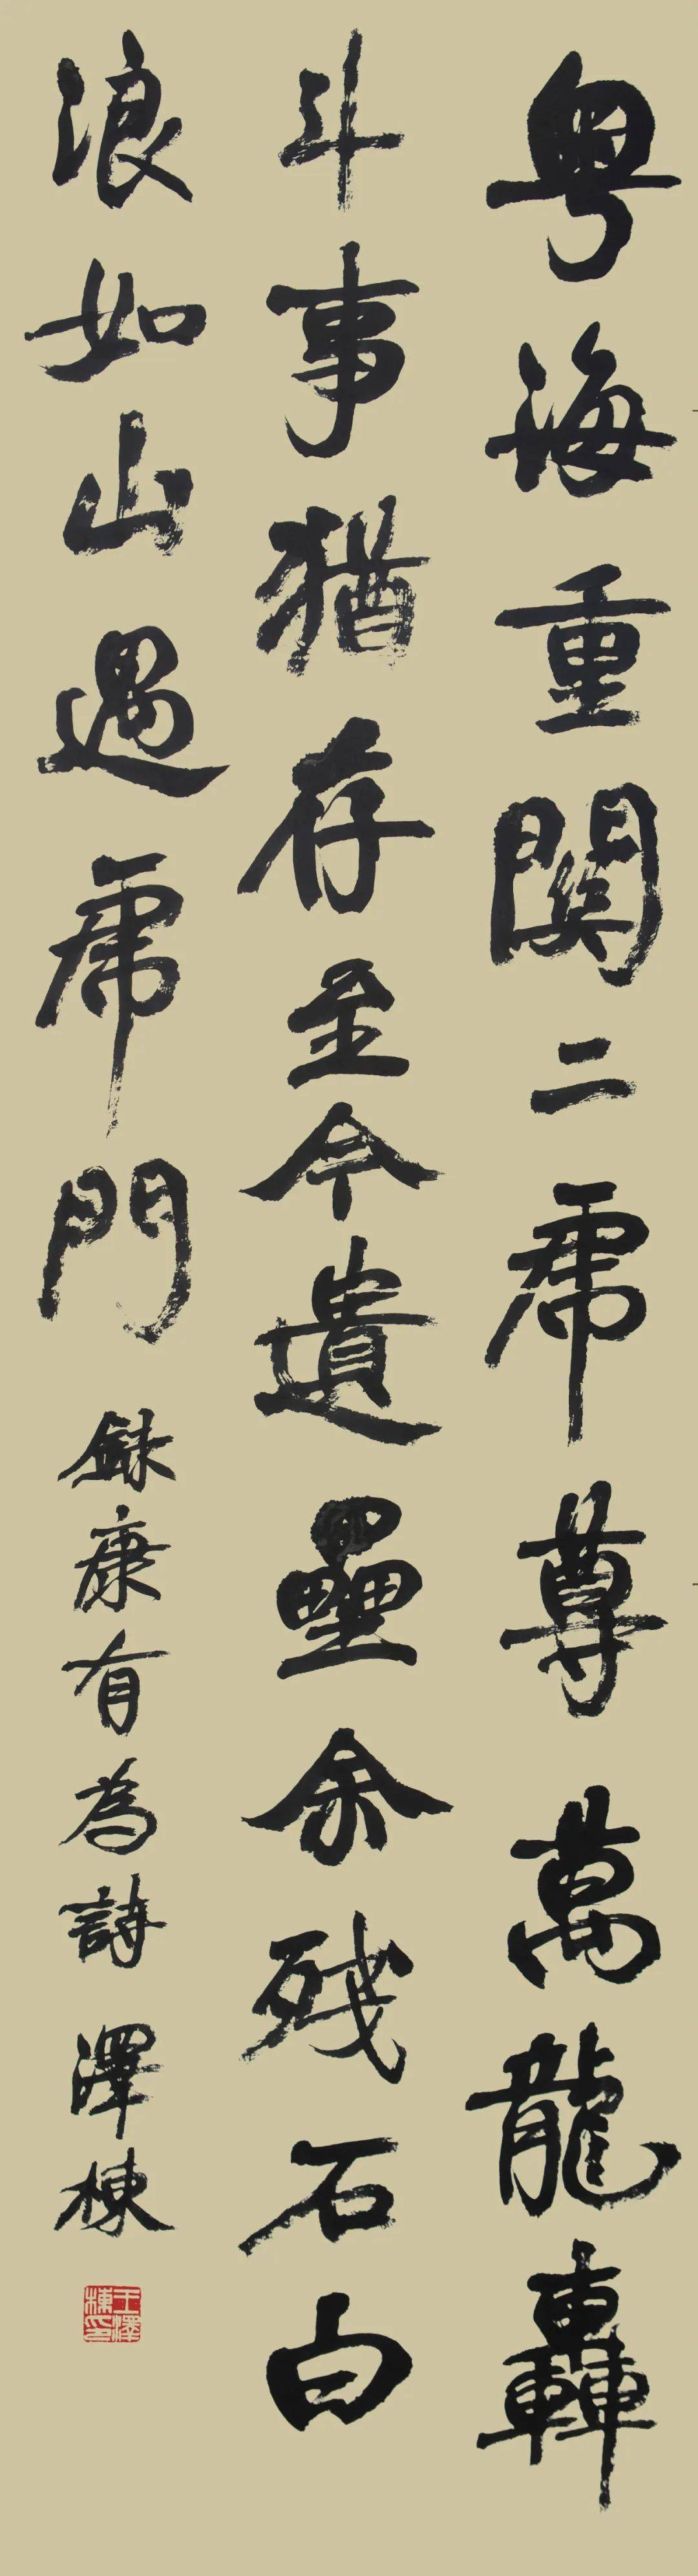 粤海重関二虎尊萬龍轟
斗事猶存至今遺壘余殘石白
浪如山過虎門
録康有為詩
澤棟
王澤棟印